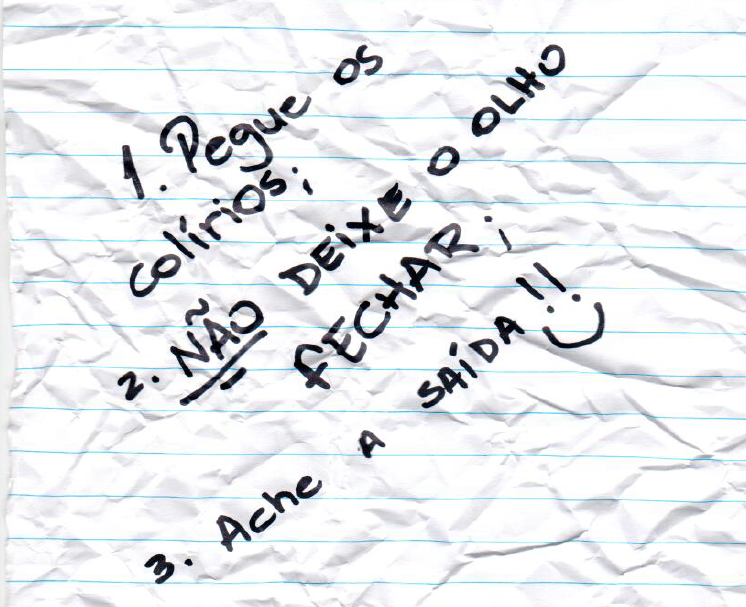 1. Pegue os
colírios;
2. NÃO DEiXE O OLHO
FECHAR;
3. Ache A SAÍDA!!